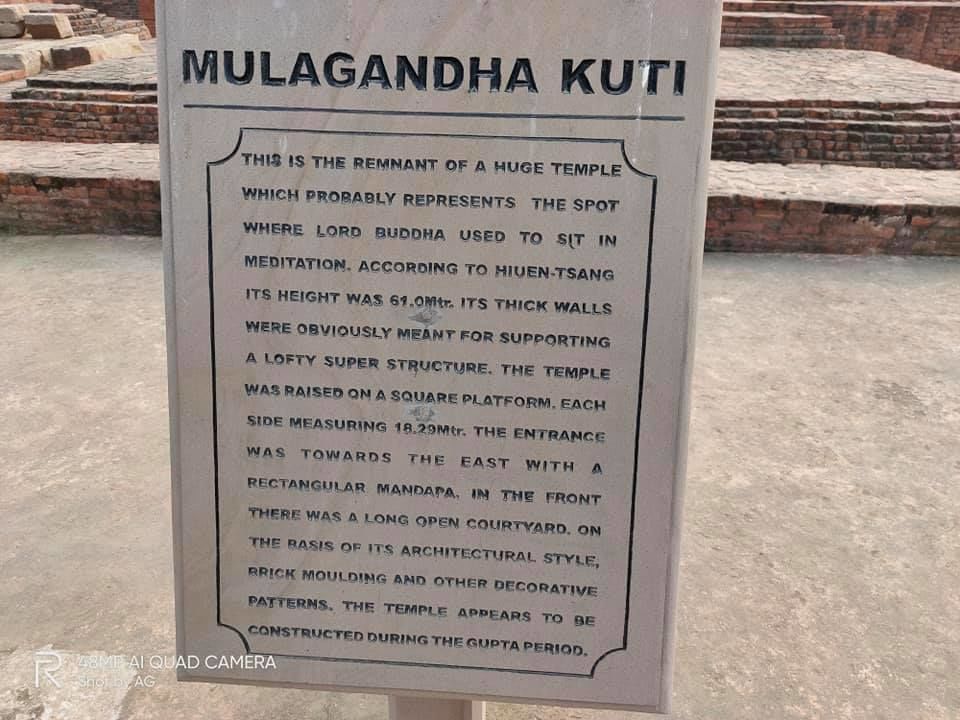 MULAGANDHA KUTI
THIS IS THE REMNANT OF A HUGE TEMPLE
WHICH PROBABLY REPRESENTS THE SPOT
WHERE LORD BUDDHA USED TO SIT IN
MEDITATION. ACCORDING TO HIUEN-TSANG
ITS HEIGHT WAS 61.0Mtr. ITS THICK WALLS
WERE OBVIOUSLY MEANT FOR SUPPORTING
A LOFTY SUPER STRUCTURE. THE TEMPLE
WAS RAISED ON A SQUARE PLATFORM. EACH
SIDE MEASURING 18.29Mtr. THE ENTRANCE
WAS TOWARDS THE EAST WITH A
RECTANGULAR MANDAPA. IN THE FRONT
THERE WAS A LONG OPEN COURTYARD. ON
THE BASIS OF ITS ARCHITECTURAL STYLE,
BRICK MOULDING AND OTHER DECORATIVE
PATTERNS. THE TEMPLE APPEARS TO BE
CONSTRUCTED DURING THE GUPTA PERIOD.
R 48MP AI QUAD CAMERA
Shot by AG